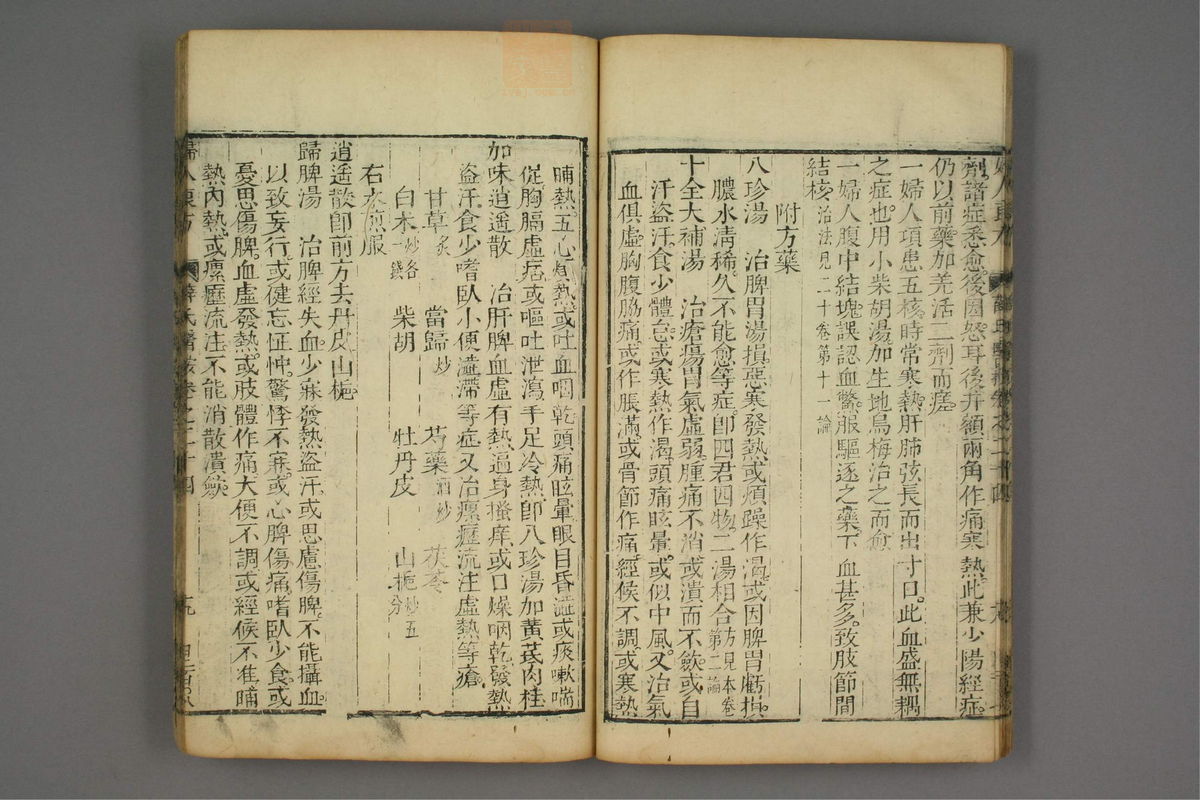 劑諸症悉愈後因怒耳後并額兩角作痛寒熱此兼少陽經症
仍以前藥加羌活二劑而瘥
一婦人項患五核時常寒熱肝肺弦長而出寸口此血盛無耦
之症也用小柴胡湯加生地烏梅治之而愈
一婦人腹中結塊誤認血鱉服驅逐之藥下血甚多致肢節間
結核治法見二十卷第十一論
附方藥
八珍湯　治脾胃湯損惡寒發熱或煩躁作渴或因脾胃虧損
膿水清稀久不能愈等症卽四君四物二湯相合方見本卷第二論
十全大補湯　治瘡瘍胃氣虛弱腫痛不消或潰而不斂或自
汗盜汗食少體倦或寒熱作渴頭痛眩暈或似中風又治氣
血俱虛胸腹脇痛或作脹滿或骨節作痛經候不調或寒熱
晡熱五心煩熱或吐血咽乾頭痛眩暈眼目昏澁或痰嗽喘
促胸膈虛痞或嘔吐泄瀉手足冷熱卽八珍湯加黃茋肉桂
加味逍遥散　治肝脾血虛有熱遍身搔痒或口燥咽乾發熱
盜汗食少嗜臥小便澁滯等症又治瘰癧流注虛熱等瘡
甘草炙　當歸炒　芍藥酒炒　茯苓
白朮炒各一錢　柴胡　牡丹皮　山梔炒五分
右水煎服
逍遥散卽前方去丹皮山梔
歸脾湯　治脾經失血少寐發熱盜汗或思慮傷脾不能攝血
以致妄行或健忘怔忡驚悸不寐或心脾傷痛嗜臥少食或
憂思傷脾血虛發熱或肢體作痛大便不調或經候不准晡
熱內熱或瘰癧流注不能消散潰斂
婦人良方　薛氏醫按卷之二十四